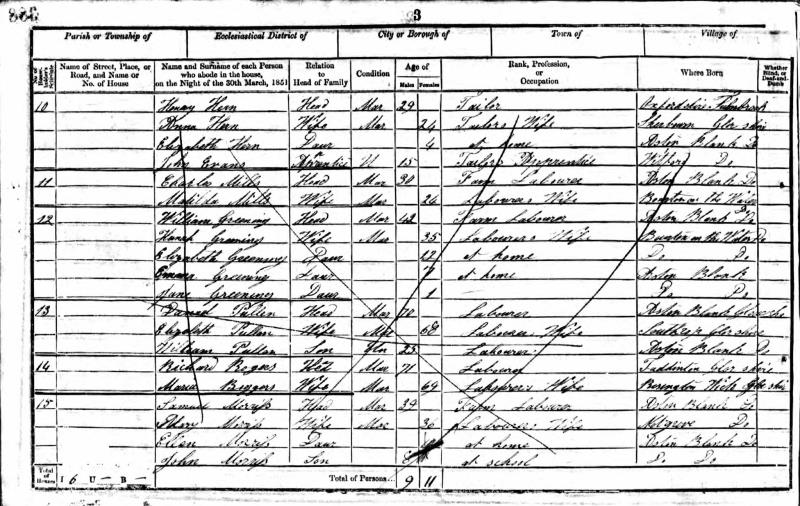 3
Parish or Township of Ecclesiastical District of City or Borough of Town of Village of
Name of Street, Place, or Road, and Name or No. of House
Name and Surname of each Person who abode in the house, on the Night of the 30th March, 1851
Relation to Head of Family
Condition
Age of
Males Females
Rank, Profession, or Occupation
Where Born
Whether Blind, or Deaf-and-Dumb
10 Henry Hern Head Mar 29 Tailor Oxfordshire
Anna Hern Wife Mar 24 Tailors Wife Sherburn Glos shire
Elizabeth Hern Daur 4 at home Aston Blank Do
John Evans Aprentice U 15 Tailors Apprentice Do
11 Charles Mills Head Mar 30 Farm Labourer Aston Blank Do
Matilda Mills Wife Mar 26 Labourers Wife Bourton on the Water
12 William Greening Head Mar 42 Farm Labourer Aston Blank Do
Hanah Greening Wife Mar 35 Labourers Wife Bourton on the Water Do
Elizabeth Greening Daur 12 at home Do Do
Emma Greening Daur 7 at home Aston Blank
Jane Greening Daur 1 Do Do
13 Daniel Pullen Head Mar 70 Labourer Aston Blank
Elizabeth Pullen Wife Mar 68 Labourers Wife
William Pullen Son 23 Labourer Aston Blank Do
14 Richard Mar 71 Labourer
Maria Wife Mar 69 Labourers Wife
15 Samuel Morriss Head Mar 39 Farm Labourer Aston Blank
Morris Wife Mar 36 Labourers Wife Notgrove Do
Ellen Morris Daur at home Aston Blank Do
John Morriss Son at school Do Do
Total of Houses 1 6 U – B – Total of Persons... 9 11